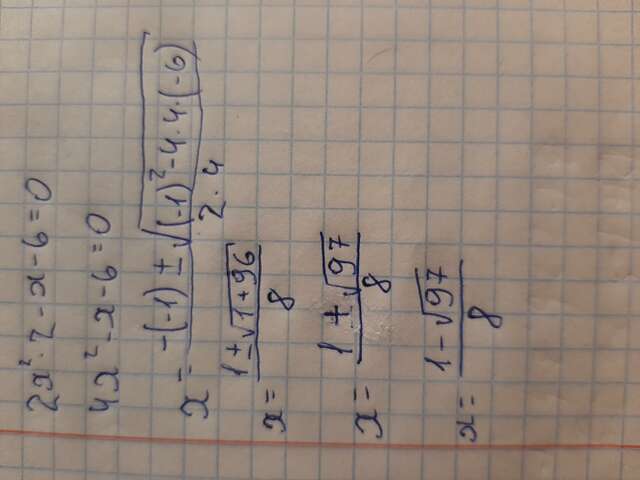 2x²·2-x-6=0
4x²-x-6=0
x = -(-1) ± √(-1)²-4·4·(-6) / 2·4
x = 1±√1+96 / 8
x = 1+√97 / 8
x = 1-√97 / 8